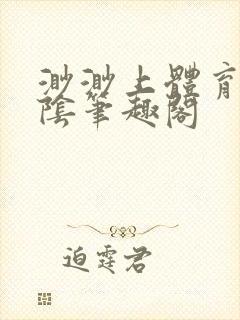 渺渺上體育
陰筆趣閣
迫霆君